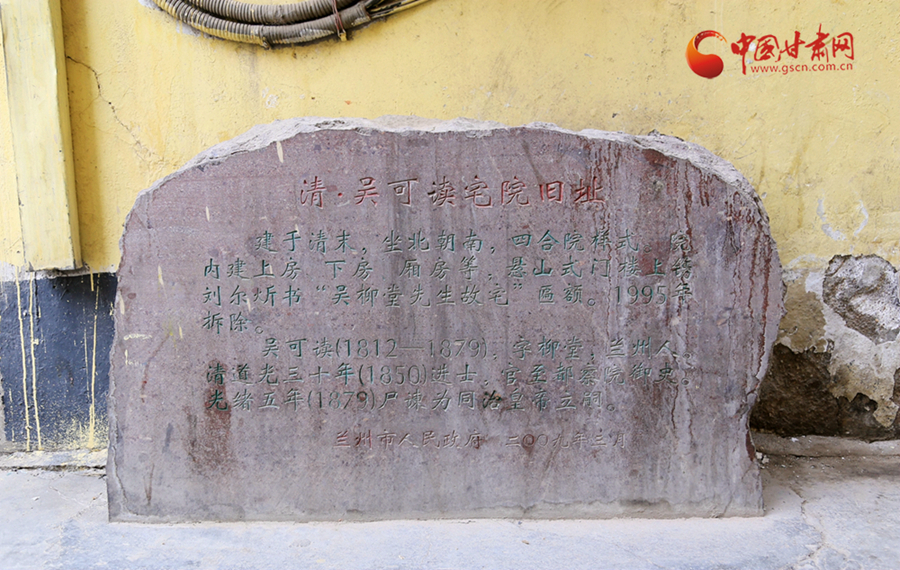 中国甘肃网
www.gscn.com.cn
清·吴可读宅院旧址
建于清末，坐北朝南，四合院样式。院
内建上房、下房、厢房等，悬山式门楼上
刘尔炘书“吴柳堂先生故宅”匾额。1995年
拆除。
吴可读(1812—1879)，字柳堂，兰州人。
清道光三十年(1850)进士，官至都察院御史。
光绪五年(1879)尸谏为同治皇帝立嗣。
兰州市人民政府 二〇〇九年三月